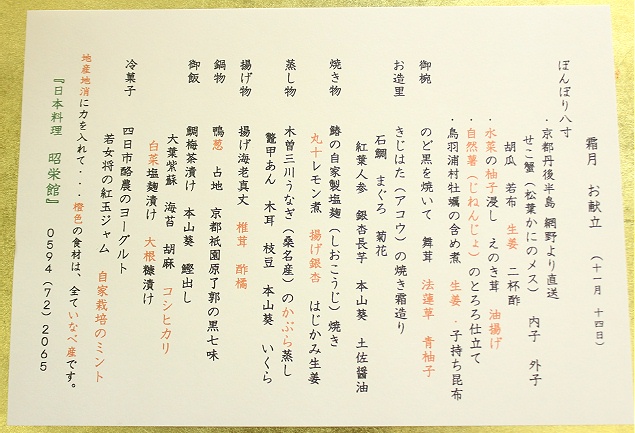 霜月　お献立　（十一月　十四日）
ぼんぼり八寸
・京都丹後半島 網野より直送
せこ蟹（松葉かにのメス）　内子　外子
胡瓜　若布　生姜　二杯酢
・水菜の柚子浸し　えのき茸　油揚げ
・自然薯（じねんじょ）のとろろ仕立て
・鳥羽浦村牡蠣の含め煮　生姜　・子持ち昆布
御椀　のど黒を焼いて　舞茸　法蓮草　青柚子
お造里　きじはた（アコウ）の焼き霜造り
石鯛　まぐろ　菊花
紅葉人参　銀杏長芋　本山葵　土佐醤油
焼き物　鰆の自家製塩麹（しおこうじ）焼き
丸十レモン煮　揚げ銀杏　はじかみ生姜
蒸し物　木曽三川うなぎ（桑名産）のかぶら蒸し
鼈甲あん　木耳　枝豆　本山葵　いくら
揚げ物　揚げ海老真丈　椎茸　酢橘
鍋物　鴨葱　占地　京都祇園原了郭の黒七味
御飯　鯛梅茶漬け　本山葵　鰹出し
大葉紫蘇　海苔　胡麻　コシヒカリ
白菜塩麹漬け　大根糠漬け
冷菓子　四日市酪農のヨーグルト
若女将の紅玉ジャム　自家栽培のミント
地産地消に力を入れて・・・橙色の食材は、全ていなべ産です。
『日本料理　昭栄館』　０５９４（７２）２０６５